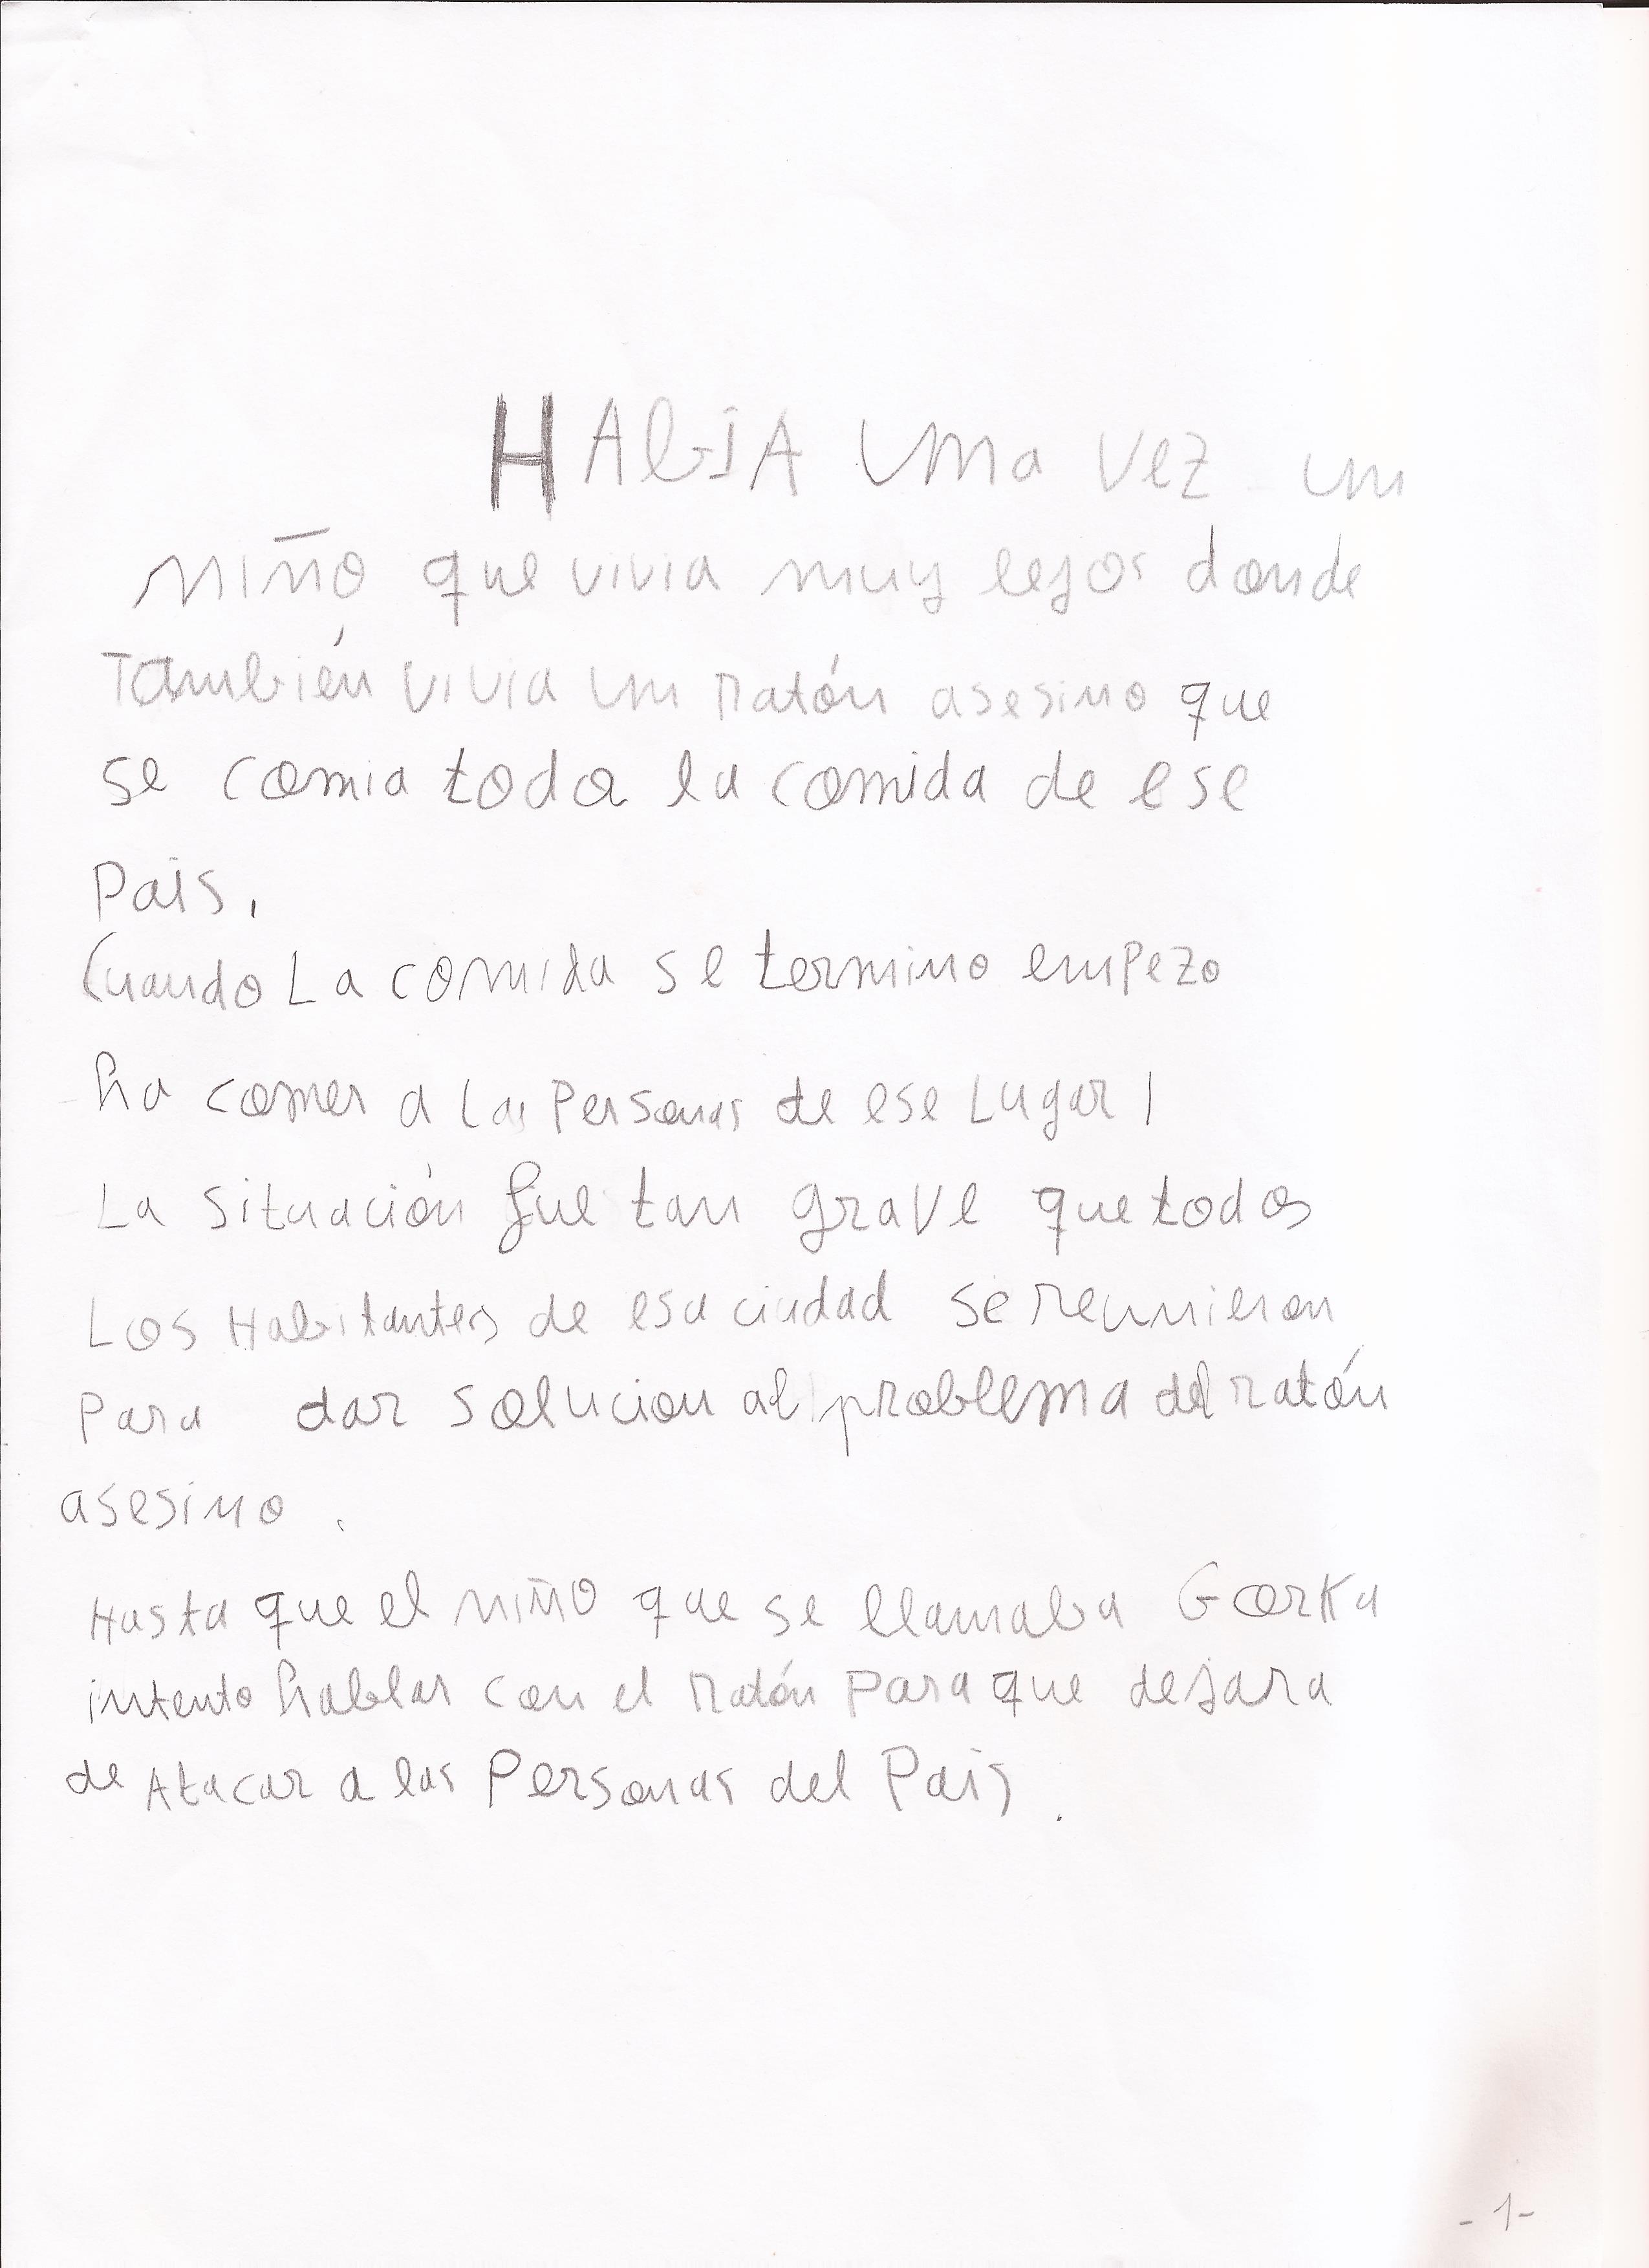 HAbIA una vez un
niño que vivia muy lejos donde
También vivia un Ratón asesino que
se comia toda la comida de ese
Pais,
Cuando La comida se termino empezo
ha comer a las Personas de ese Lugar,
La situación fue tan grave que todos
Los Habitantes de esa ciudad se reunieron
Para dar solucion al problema del ratón
asesino.
Hasta que el niño que se llamaba Gorka
intento hablar con el Ratón Para que dejara
de Atacar a las Personas del Pais.
-1-